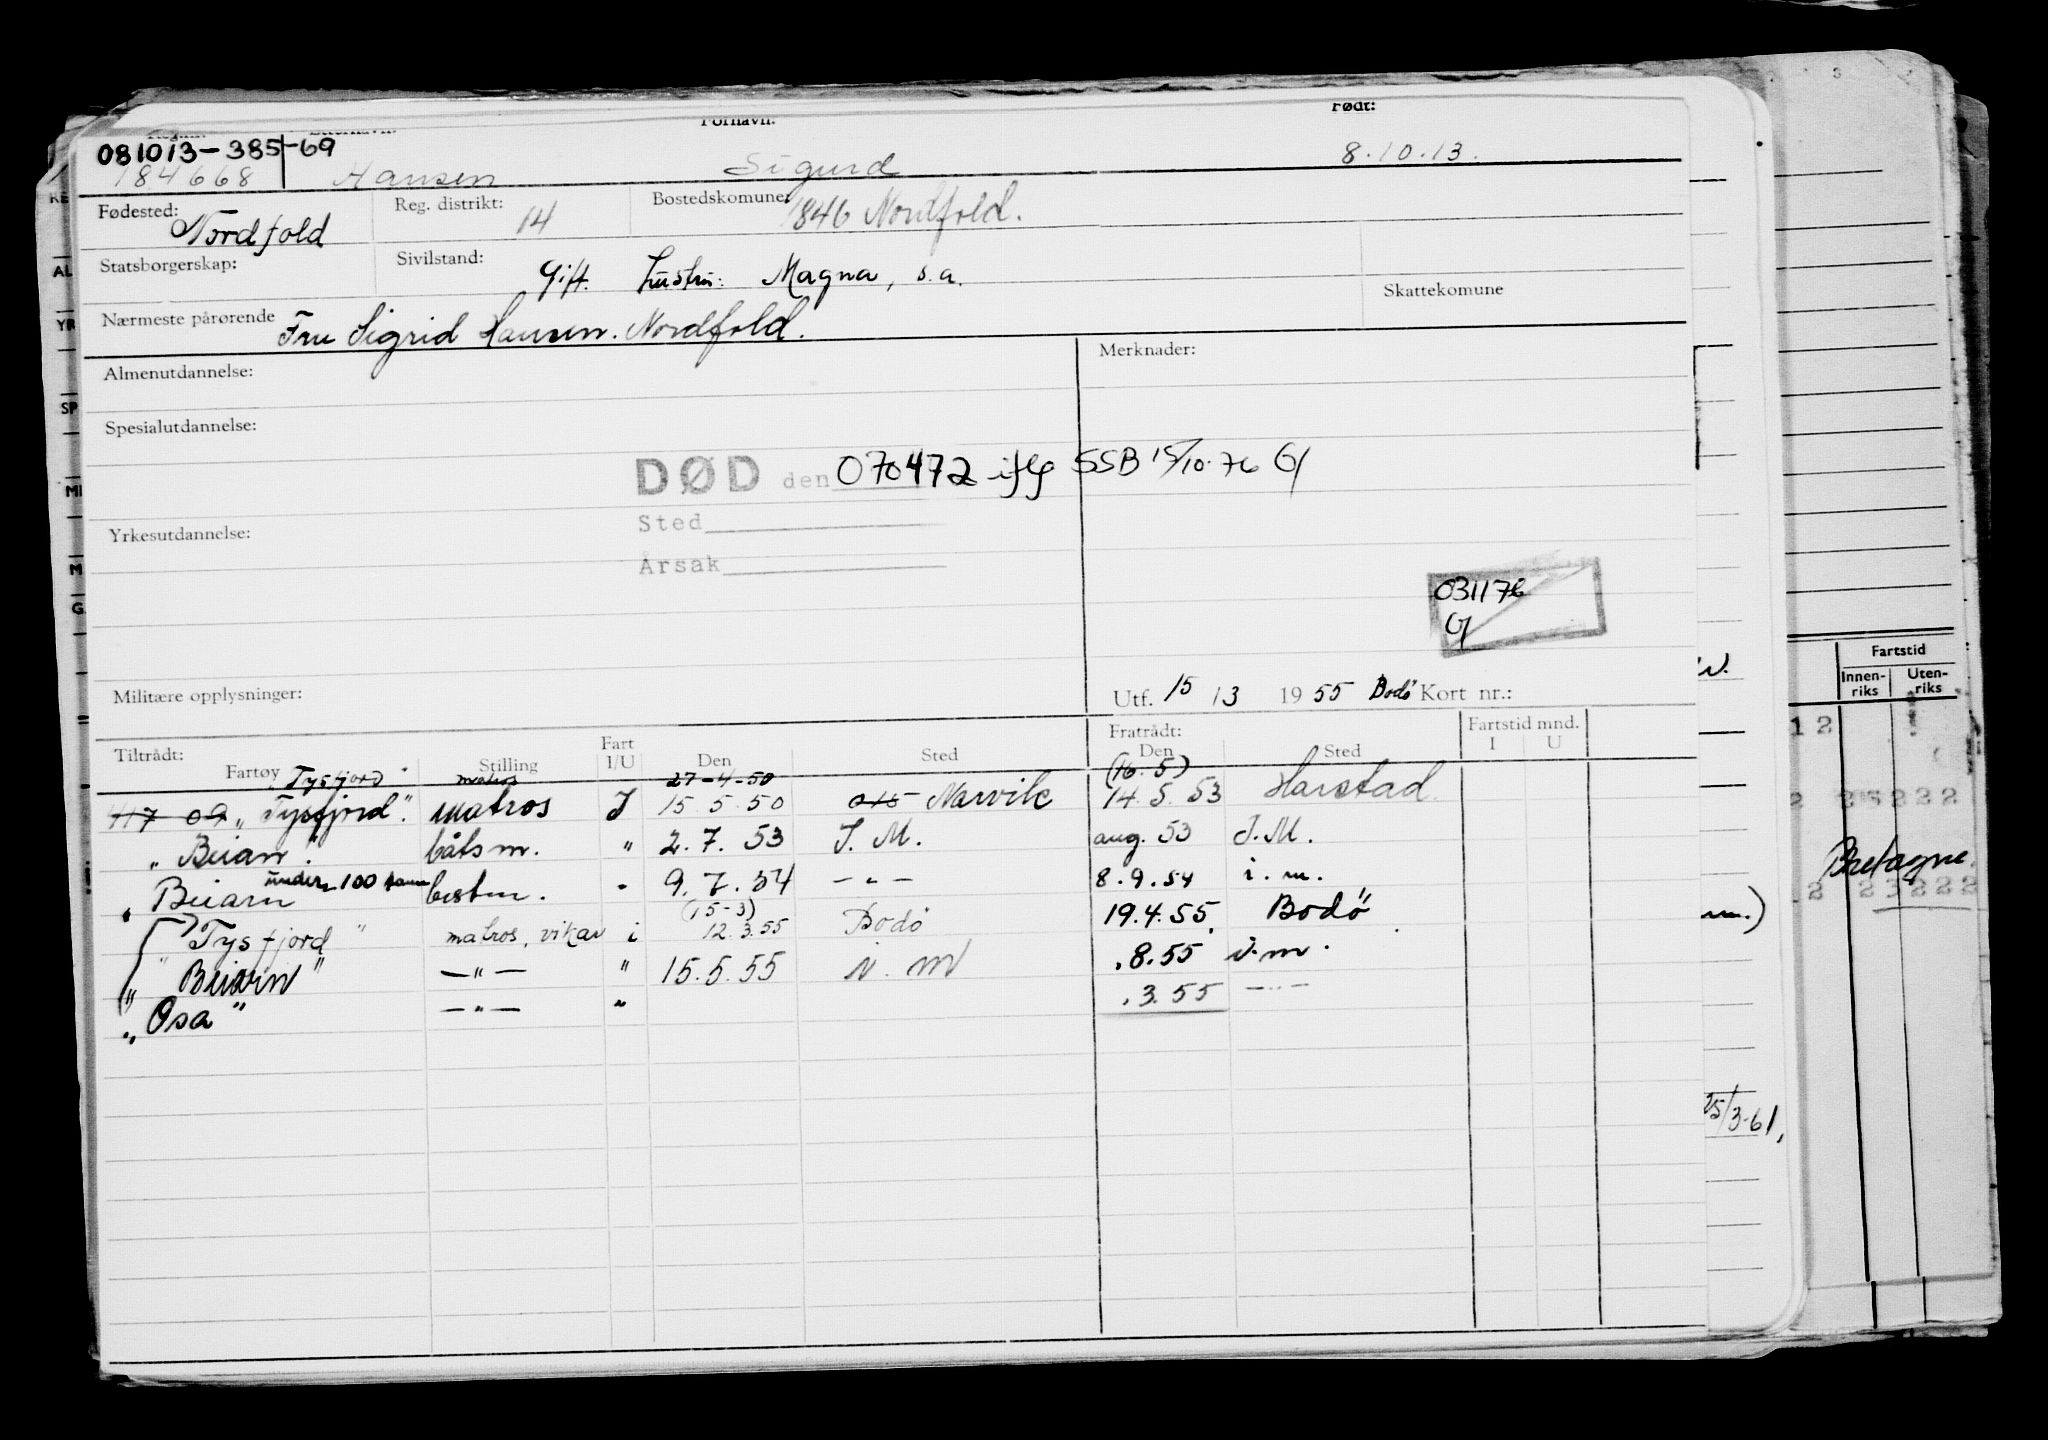 Fornavn: Født:
081013-385-69
184668 Hansen Sigurd 8.10.13.
Fødested: Nordfold Reg. distrikt: 14 Bostedskomune: 1846 Nordfold.
Statsborgerskap: Sivilstand: Gift. Hustru: Magna, s.a.
Skattekomune
Nærmeste pårørende Fru Sigrid Hansen. Nordfold.
Almenutdannelse: Merknader:
Spesialutdannelse:
DØD den 070472 iflg SSB 15/10.76 G
Sted
Yrkesutdannelse:
Årsak
031176
G
Militære opplysninger: Utf. 15 / 3 1955 Bodø Kort nr.:
Tiltrådt: Fratrådt: Fartstid mnd.
Fartøy Stilling Fart I/U Den Sted Den Sted I U
"Tysfjord" matros 27-4-50 (16.5)
417 09 "Tysfjord". Matros I 15.5.50 015 Narvik 14.5.53 Harstad.
"Beian". båtsm. " 2.7.53 I.M. aug. 53 I.M.
under 100 tonn
"Beiarn bestm. " 9.7.54 -"- 8.9.54 i.m.
(15-3)
"Tysfjord" matros, vikar i 12.3.55 Bodø 19.4.55. Bodø
"Beiarn" -"- " 15.5.55 i.m .8.55 i.m.
"Osa" -"- " .3.55 -"-
Fartstid
Innen-riks Uten-riks
12
Bretagne
25/3-61,